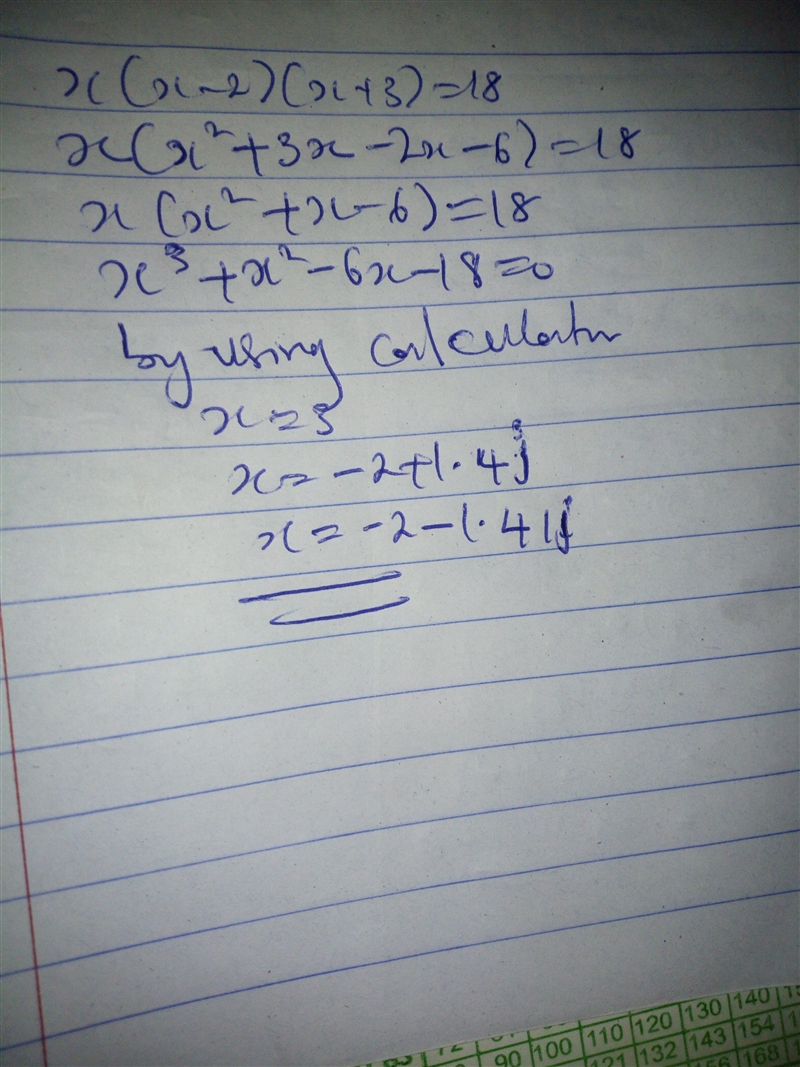 x(x-2)(x+3)=18
x(x²+3x-2x-6)=18
x(x²+x-6)=18
x³+x²-6x-18=0
by using calculator
x=3
x=-2+1.4j
x=-2-1.41j
130 140
90 100 110 120 132 143 154
156 168